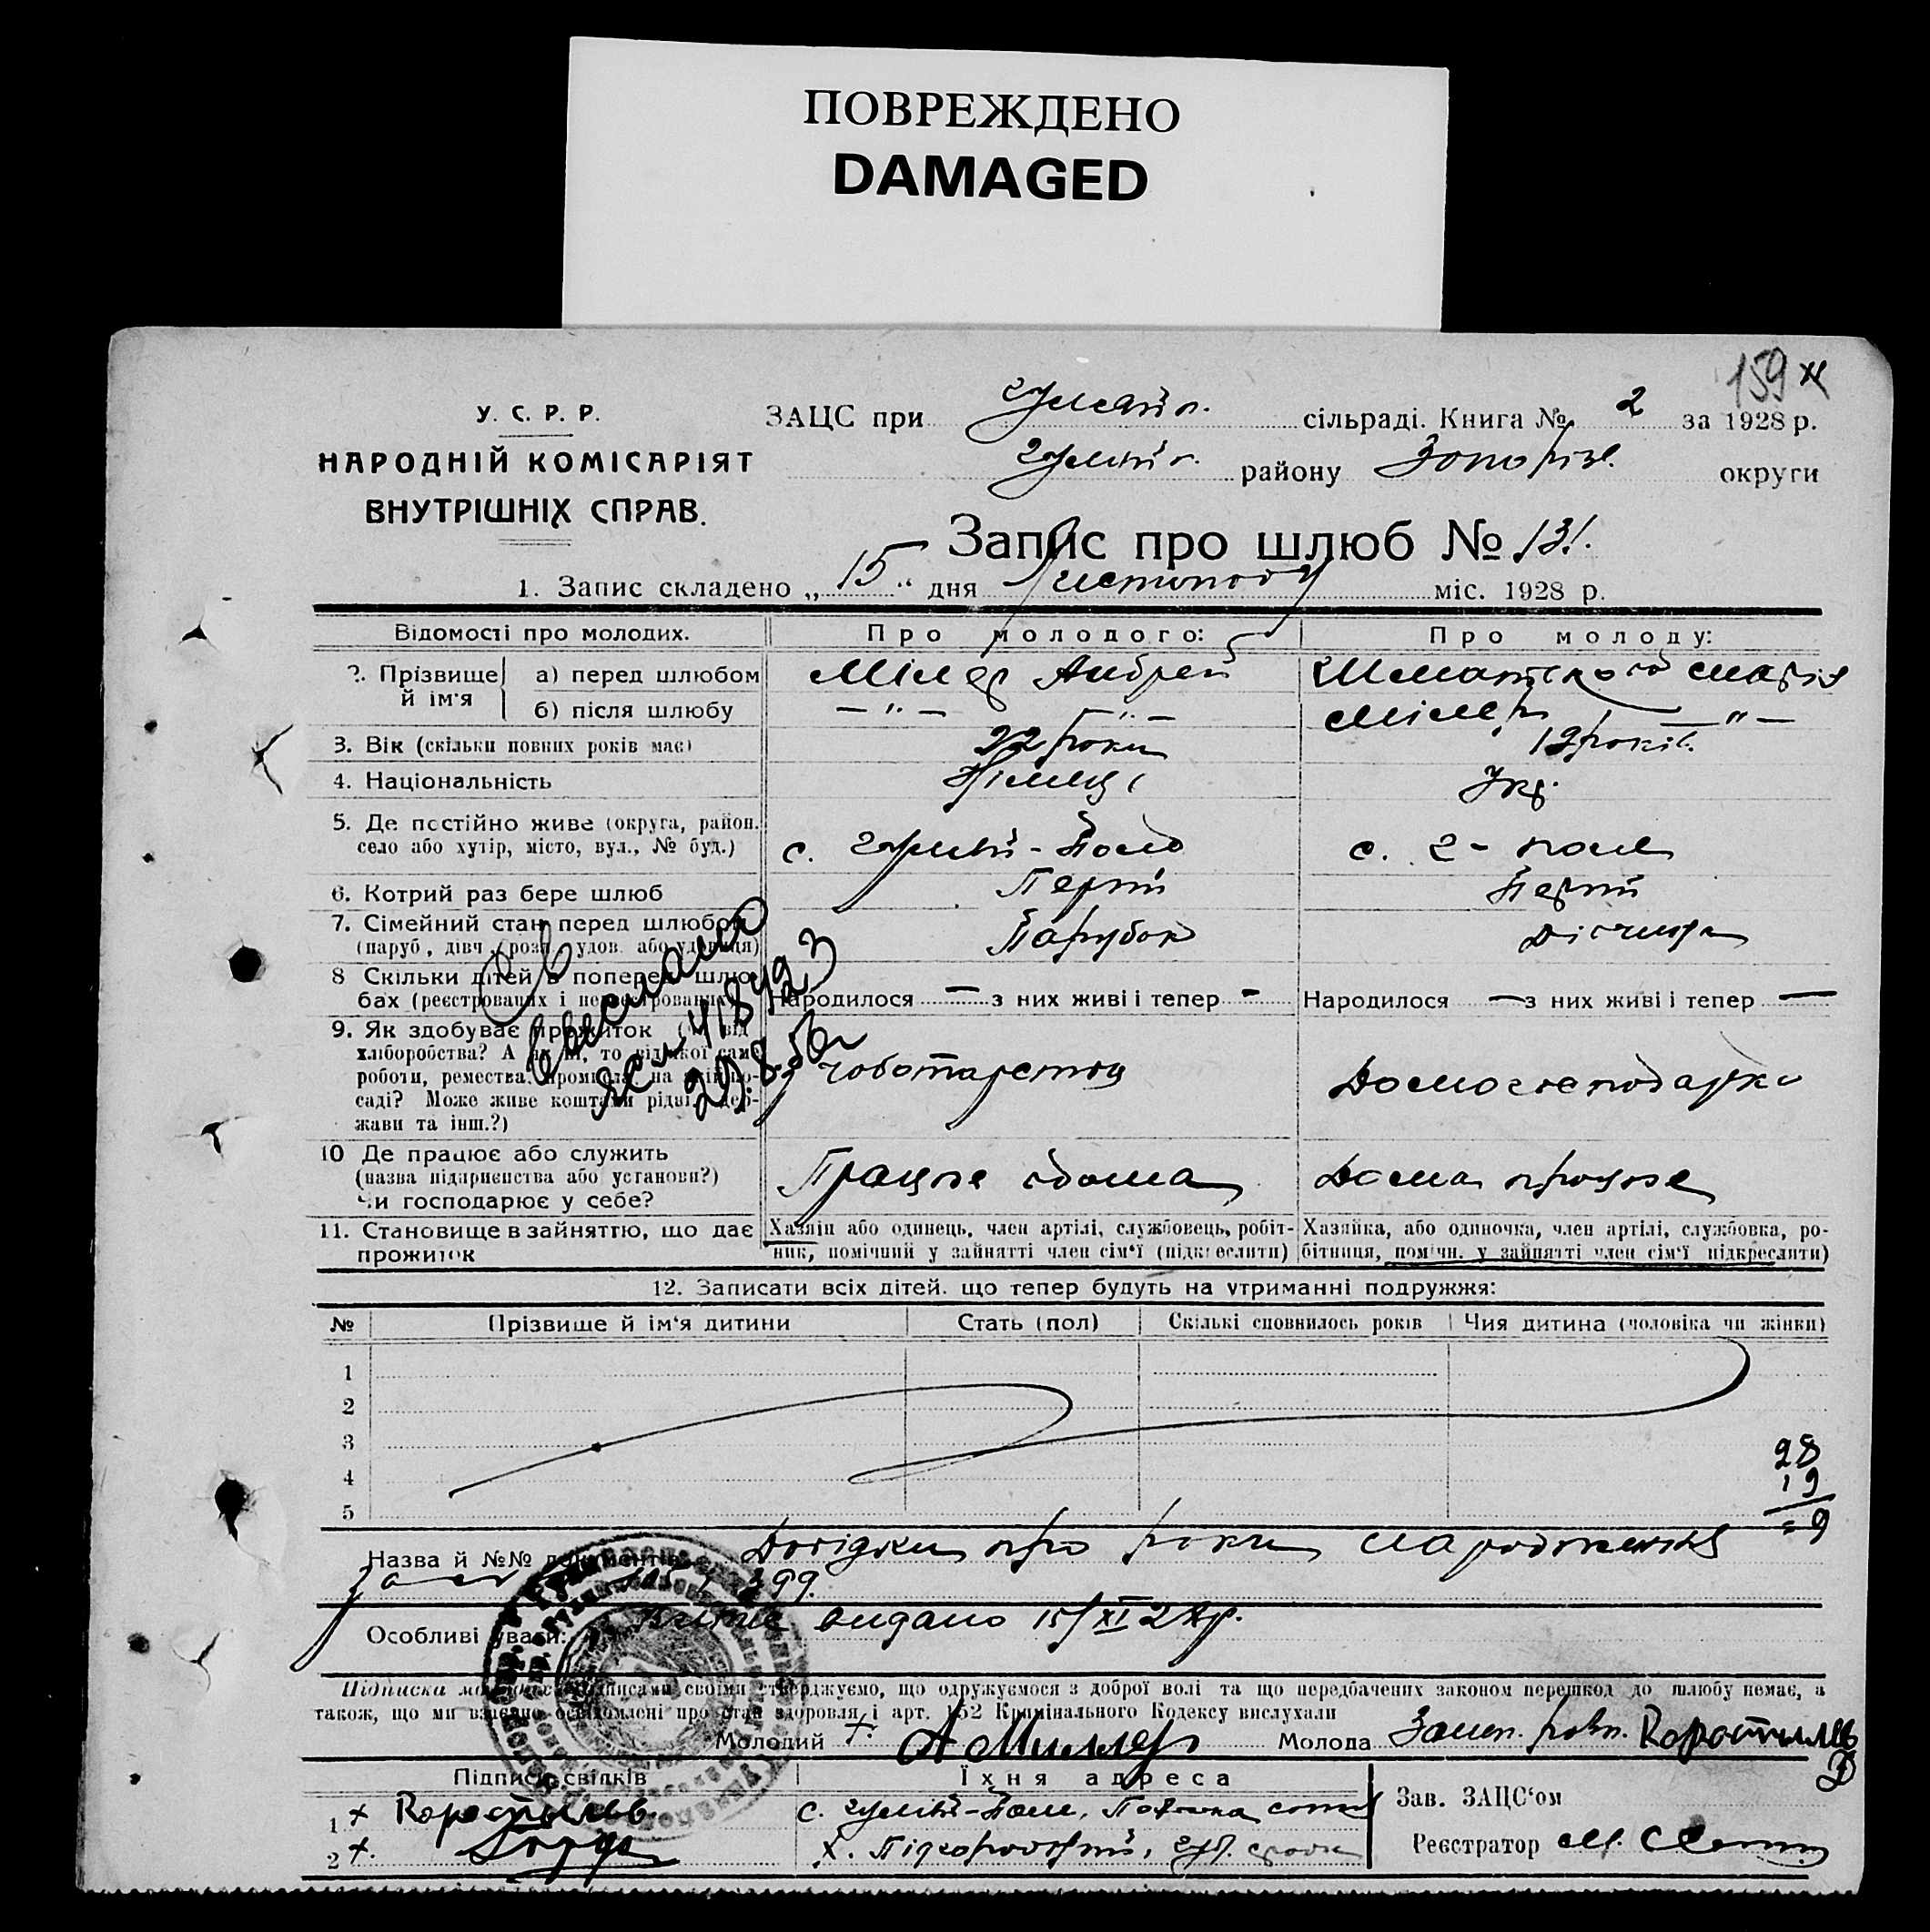 ПОВРЕЖДЕНО
DAMAGED
159
У. С. Р. Р.
НАРОДНІЙ КОМІСАРІЯТ
ВНУТРІШНІХ СПРАВ.
ЗАЦС при сільраді. Книга № 2 за 1928 р.
району Запоріз. округи
Запис про шлюб № 131.
1. Запис складено „15“ дня Листопаду міс. 1928 р.
Відомості про молодих. Про молодого: Про молоду:
2. Прізвище й ім'я а) перед шлюбом Мілер Андрей Марія
б) після шлюбу — " — — " — Мілер — " —
3. Вік (скільки повних років має) 22 роки 19 років.
4. Національність Німець Укр.
5. Де постійно живе (округа, район. село або хутір, місто, вул., № буд.) с. Гуляй-Поле с. Г-поле
6. Котрий раз бере шлюб Перший Перший
7. Сімейний стан перед шлюбом (паруб, дівч., розв., удов. або удовиця) Парубок Дівчина
8 Скільки дітей в поперед. шлюбах (реєстрованих і нереєстрованих) Народилося — з них живі і тепер - Народилося — з них живі і тепер —
9. Як здобуває прожиток (чи від хліборобства? А як ні, то від якої саме роботи, ремества, промисла, на якій посаді? Може живе коштами рідні, держави та інш.?) Домогосподарка
29.8.56г
10 Де працює або служить (назва підприємства або установи?) Чи господарює у себе? Працює дома Дома працює
11. Становище в зайняттю, що дає прожиток
Хазяїн або одинець, член артілі, службовець, робітник, помічний у зайнятті член сім'ї (підкреслити)
Хазяйка, або одиночка, член артілі, службовка, робітниця, помічн. у зайнятті член сім'ї підкреслити)
12. Записати всіх дітей, що тепер будуть на утриманні подружжя:
№ Прізвище й ім'я дитини Стать (пол) Скількі сповнилось років Чия дитина (чоловіка чи жінки)
1
2
3
4
5
28
19
9
Назва й №№ документів Довідки про роки народження
399.
Особливі уваги: видано 15/XI 28р.
Підписка молодих: Підписами своїми стверджуємо, що одружуємося з доброї волі та що передбачених законом перешкод до шлюбу немає, а
також, що ми взаємно освідомлені про стан здоровля і арт. 152 Кримінального Кодексу вислухали
Молодий +. А Миллер Молода
Підписи свідків Їхня адреса
1 + с. Гуляй-Поле,
2 +. х.
Зав. ЗАЦС'ом
Реєстратор